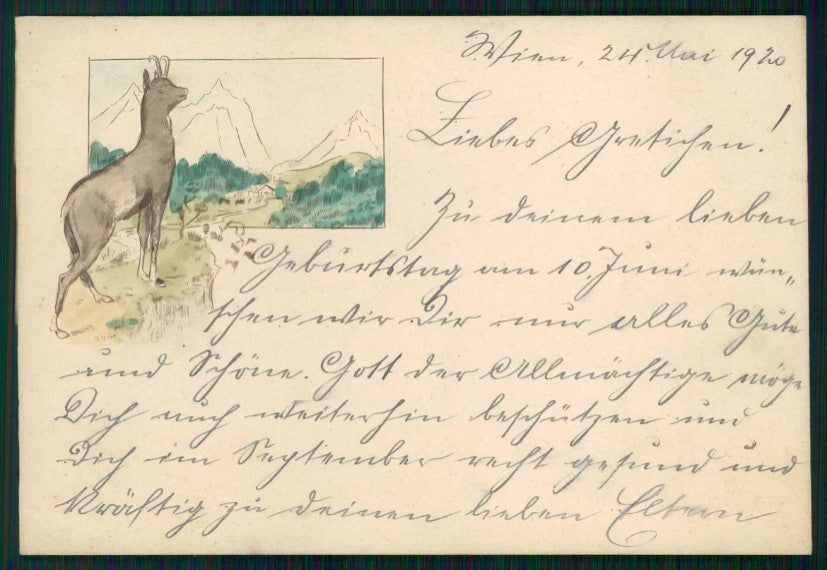 Wien, 24. Mai 1920
Liebes Gretichen!
Zu deinem lieben
Geburtstag am 10. Juni wün„
schen wir Dir nur alles Gute
und Schöne. Gott der Allmächtige möge
Dich auch weiterhin beschützen und
Dich im September recht gesund und
kräftig zu deinen lieben Eltern